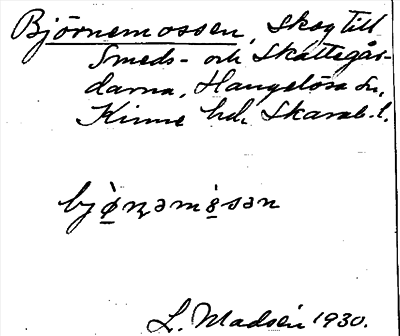 Björnemossen, skog till
Smeds- och Skattegår-
darna, Hangelösa sn,
Kinne hd, Skarab. l.
bjø̀ꞃəmòsən
L. Madsén 1930.